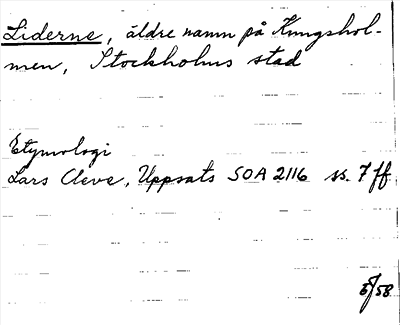 Liderne, äldre namn på Kungshol-
men, Stockholms stad
Etymologi
Lars Cleve, Uppsats SOA 2116 ss. 7 ff
5/58